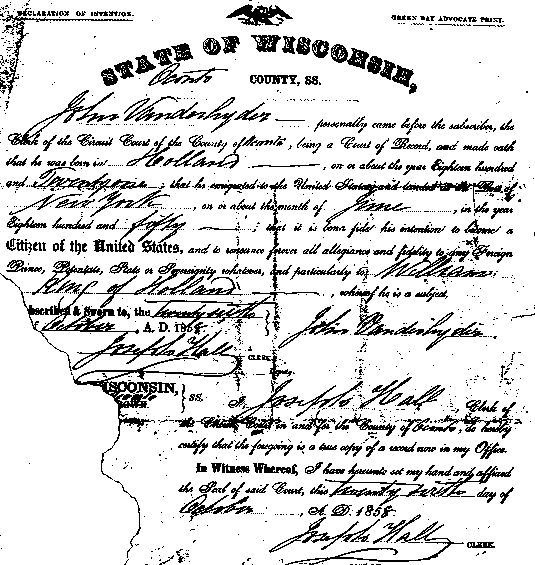 DECLARATION OF INTENTION.
GREEN BAY ADVOCATE PRINT.
STATE OF WISCONSIN,
Oconto COUNTY, SS.
John Vanderhyder personally came before the subscriber, the
Clerk of the Circuit Court of the County of Oconto, being a Court of Record, and made oath
that he was born in Holland, on or about the year Eighteen hundred
and; that he emigrated to the United States and landed at the Port of
New York, on or about the month of June, in the year
Eighteen hundred and fifty; that it is bona fide his intention to become a
Citizen of the United States, and to renounce forever all allegiance and fidelity to any Foreign
Prince, Potentate, State or Sovereignty whatever, and particularly to William
King of Holland, whereof he is a subject.
bscribed & Sworn to, the twenty sixth
October A. D. 1858
John Vanderhyder
Joseph Hall
CLERK.
ISCONSIN,
SS. I Joseph Hall Clerk of
the Circuit Court in and for the County of Oconto, do hereby
certify that the foregoing is a true copy of a record now in my Office.
In Witness Whereof, I have hereunto set my hand and affixed
the Seal of said Court, this twenty sixth day of
October A. D. 1858
Joseph Hall CLERK.